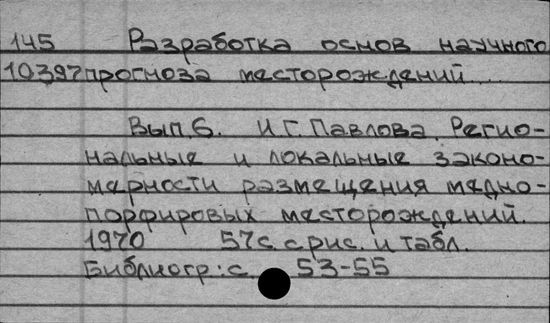 145 Разработка основ научного
10397 прогноза месторождений...
Вып.6. И.Г.Павлова. Регио-
нальные и локальные законо-
мерности размещения медно-
порфировых месторождений.
1970 57с. с рис. и табл.
Библиогр: с 53-55